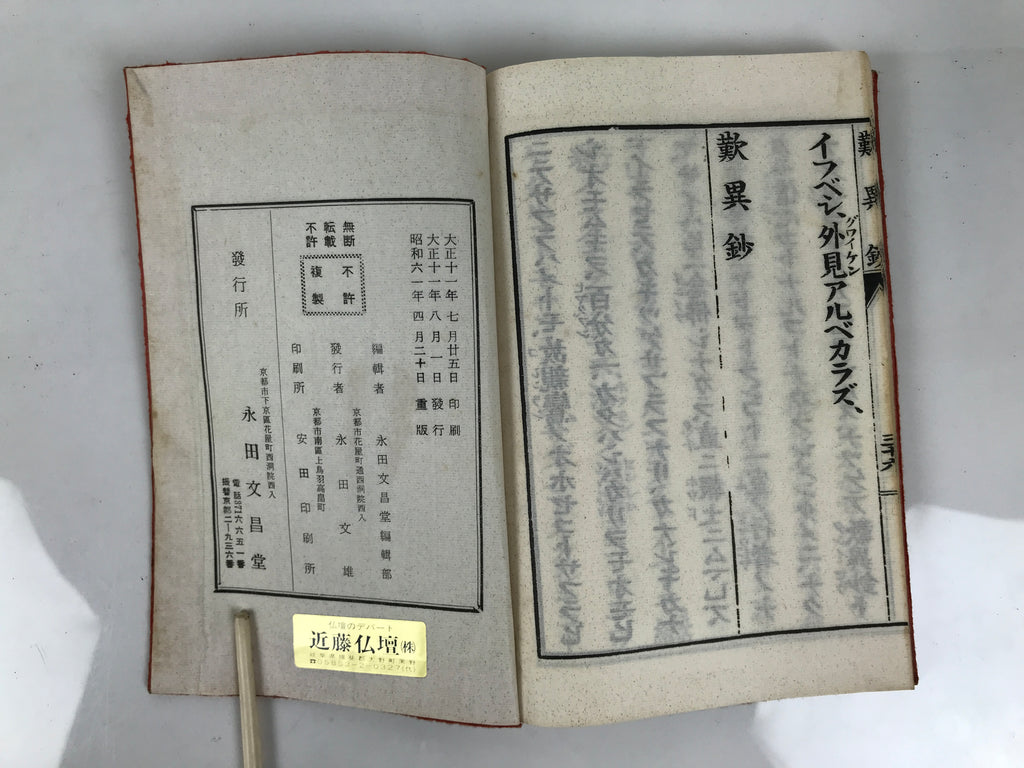 歎異鈔
三十六
イフベシ、外見アルベカラズ、
グワイケン
歎異鈔
大正十一年七月廿五日印刷
大正十一年八月一日發行
昭和六一年四月二十日重版
無断
転載
不許
不許
複製
編輯者 永田文昌堂編輯部
京都市花屋町通西洞院西入
發行者 永田文雄
京都市南區上鳥羽高畠町
印刷所 安田印刷所
發行所
京都市下京區花屋町西洞院西入
永田文昌堂
電話371六六五一番
振替京都二―九三六番
仏壇のデパート
近藤仏壇㈱